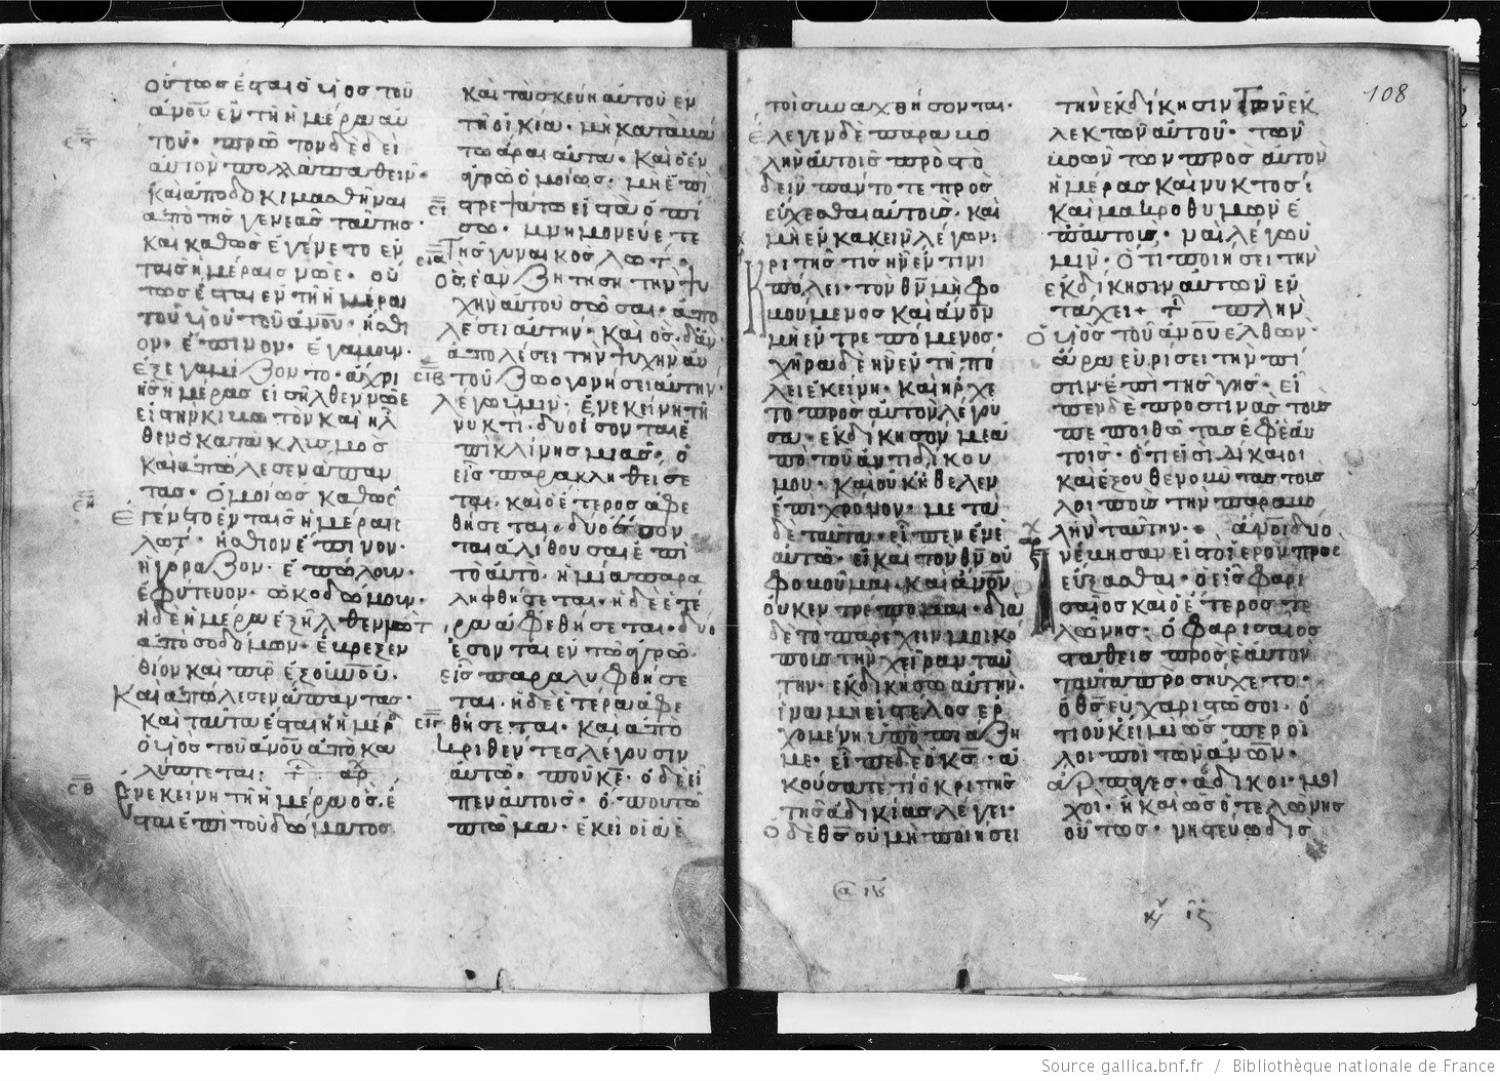 οὕτωσ ἔσται ὁ υἱὸσ τοῦ
ἀνου ἐν τῆ ἡμέρα αὐ
τοῦ· πρῶτον δὲ δεῖ
αὐτὸν πολλὰ παθεῖν·
καὶ ἀποδοκιμασθῆναι
ἀπὸ τῆσ γενεᾶσ ταύτησ·
καὶ καθὼσ ἐγένετο ἐν
ταῖσ ἡμέραισ νῶε· οὕ
τωσ ἔσται ἐν τῆ ἡμέρα
τοῦ υἱοῦ τοῦ ἀνου· ἤσθι
ον· ἔπινον· ἐγάμουν·
ἐξεγαμίζοντο· ἄχρι
ἧσ ἡμέρασ εἰσῆλθεν νῶε
εἰσ τὴν κιβωτὸν καὶ ἦλ
θεν ὁ κατακλυσμὸσ
καὶ ἀπώλεσεν ἅπαν
τασ· ὁμοίωσ καθὼσ
ἐγένετο ἐν ταῖσ ἡμέραισ
λώτ· ἤσθιον ἔπινον·
ἠγόραζον· ἐπώλουν·
ἐφύτευον· ὠκοδώμουν·
ἧ δὲ ἡμέρα ἐξῆλθεν λώτ
ἀπὸ σοδόμων· ἔβρεξεν
θίον καὶ πῦρ ἐξ οὐνου·
Καὶ ἀπώλεσεν ἅπαντασ·
κατὰ ταῦτα ἔσται ἧ ἡμέρα
ὁ υἱὸσ τοῦ ἀνου ἀποκα
λύπτεται·
Ἐν ἐκείνη τῆ ἡμέρα ὃσ ἔ
σται ἐπὶ τοῦ δώματοσ
καὶ τὰ σκεύη αὐτοῦ ἐν
τῆ οἰκία· μὴ καταβά
τω ἆραι αὐτά· Καὶ ὁ ἐν
ἀγρῶ ὁμοίωσ· μὴ ἐπι
στρεψάτω εἰσ τὰ ὀπί
σω· μνημονεύετε
Τῆσ γυναικὸσ λώτ·
ὃσ ἐὰν ζητήση τὴν ψυ
χὴν αὐτοῦ σῶσαι· ἀπο
λέσει αὐτήν· Καὶ ὃσ δ' ἂν
ἀπολέσει τὴν ψυχὴν αὐ
τοῦ ζωογονήσει αὐτήν·
λέγω ὑμῖν· ἐν ἐκείνη τῆ
νυκτὶ· δύο ἔσονται ἐ
πὶ κλίνησ μιᾶσ· ὁ
εἷσ παραληφθήσε
ται· καὶ ὁ ἕτεροσ ἀφε
θήσεται· δύο ἔσον
ται ἀλίθουσαι ἐπὶ
τὸ αὐτό· ἡ μία παρα
ληφθήσεται· ἡ δὲ ἑτέ
ρα ἀφεθήσεται· δύο
ἔσονται ἐν τῶ ἀγρῶ·
εἷσ παραληφθήσε
ται· ἡ δὲ ἑτέρα ἀφε
θήσεται· Καὶ ἀπο
κριθέντεσ λέγουσιν
αὐτῶ· ποῦ κε· ὁ δὲ εἶ
πεν αὐτοῖσ· ὅπου τὸ
πτῶμα· ἐκεῖ οἱ ἀε
τοὶ συναχθήσονται·
Ἔλεγεν δὲ παραβο
λὴν αὐτοῖσ πρὸσ τὸ
δεῖν πάντοτε προσ
εύχεσθαι αὐτούσ· καὶ
μὴ ἐνκακεῖν λέγων·
Κριτήσ τισ ἦν ἔν τινι
πόλει· τὸν θν μὴ φο
βούμενοσ καὶ ἀνον
μὴ ἐντρεπόμενοσ·
χήρα δὲ ἦν ἐν τῆ πό
λει ἐκείνη· Καὶ ἤρχε
το πρὸσ αὐτὸν λέγου
σα· ἐκδίκησόν με ἀ
πὸ τοῦ ἀντιδίκου
μου· Καὶ οὐκ ἤθελεν
ἐπὶ χρόνον· μετὰ
δὲ ταῦτα· εἶπεν ἐν ἑ
αυτῶ· εἰ καὶ τὸν θν οὐ
φοβοῦμαι· Καὶ ἀνον
οὐκ ἐντρέπομαι· διά
δε τὸ παρέχειν μοι κό
πουσ τὴν χήραν ταύ
την· ἐκδικήσω αὐτήν·
ἵνα μὴ εἰσ τέλοσ ἐρ
χομένη ὑποπιάζη
με· εἶπε δὲ ὁ κσ· ἀ
κούσατε τί ὁ κριτὴσ
τῆσ ἀδικίασ λέγει·
Ὁ δὲ θσ οὐ μὴ ποιήσει
108
τὴν ἐκδίκησιν Τῶν ἐκ
λεκτῶν αὐτοῦ· τῶν
βοώντων πρὸσ αὐτὸν
ἡμέρασ καὶ νυκτόσ·
Καὶ μακροθυμῶν ἐ
π' αὐτοῖσ· ναὶ λέγω ὑ
μῖν· ὅτι ποιήσει τὴν
ἐκδίκησιν αὐτῶν ἐν
τάχει + πλὴν
Ὁ υἱὸσ τοῦ ἀνου ἐλθὼν·
ἆρα εὑρίσει τὴν πί
στιν ἐπὶ τῆσ γῆσ· εἶ
πεν δὲ πρόσ τινασ τοὺσ
πεποιθότασ ἐφ' ἑαυ
τοῖσ· ὅτι εἰσὶ δίκαιοι
καὶ ἐξουθενοῦντασ τοὺσ
λοιποὺσ τὴν παραβο
λὴν ταύτην· ἄνοι δύο
ἀνέβησαν εἰσ τὸ ἱερὸν προσ
εύξασθαι· ὁ εἷσ φαρι
σαῖοσ καὶ ὁ ἕτεροσ τε
λώνησ· ὁ φαρισαῖοσ
σταθεὶσ πρὸσ ἑαυτὸν
ταῦτα προσηύχετο·
ὁ θσ εὐχαριστῶ σοι· ὅ
τι οὐκ εἰμὶ ὡσπερ οἱ
λοιποὶ τῶν ἀνων·
ἅρπαγεσ· ἄδικοι· μοι
χοί· ἢ καὶ ὡσ ὁ τελώνησ
οὗτοσ· νηστεύω δὶσ
Source gallica.bnf.fr / Bibliothèque nationale de France